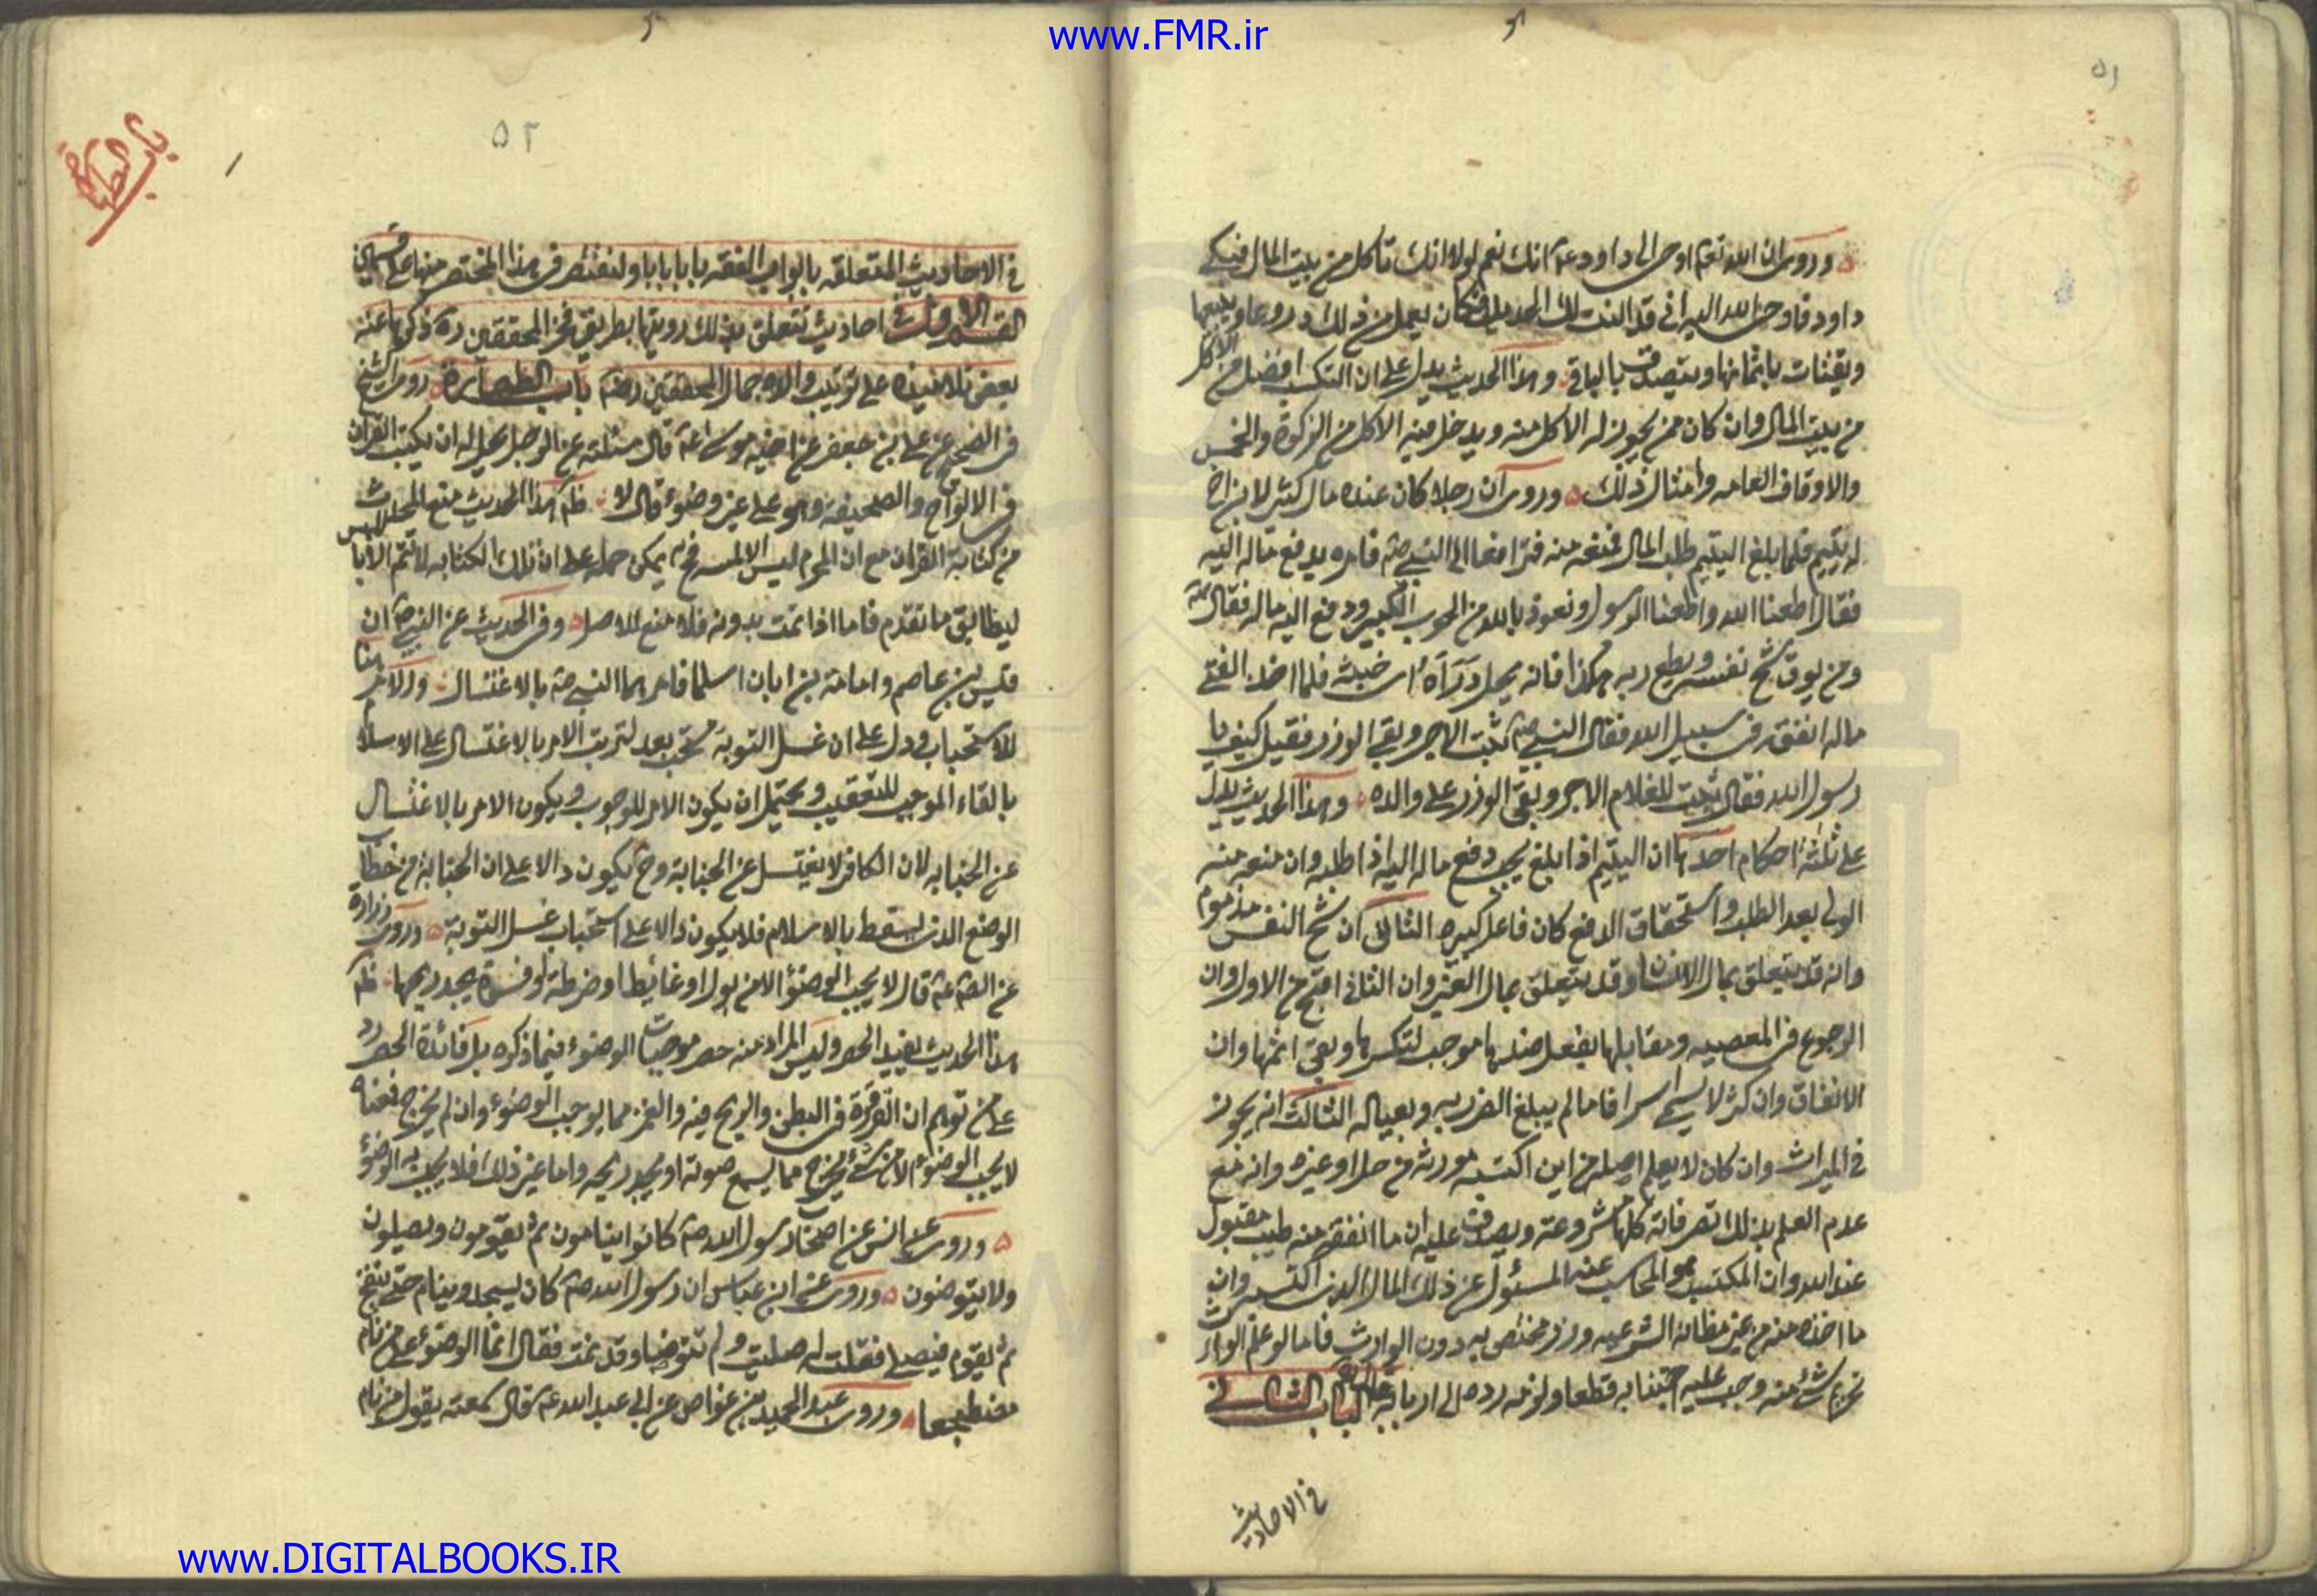 www.FMR.ir
٥١
وروى ان الله تعم اوحى الى داود عم انك نعم لولا انك تاكل من بيت المال فبكى
داود فاوحى الله اليه انى قد النت لك الحديد فكان يعمل من ذلك دروعا ويبيعها
ويقتات باثمانها ويتصدق بالباقى وهذا الحديث يدل على ان التكسب افضل من الاكل
من بيت المال وان كان ممن يجوز له الاكل منه ويدخل فيه الاكل من الزكوة والخمس
والاوقاف العامه وامثال ذلك وروى ان رجلا كان عنده مال كثير لابن اخ
له يتيم فلما بلغ اليتيم طلب المال فمنعه منه فترافعا الى النبى صم فامره بدفع ماله اليه
فقال اطعنا الله واطعنا الرسول ونعوذ بالله من الحوب الكبير ودفع اليه ماله فقال صم
ومن يوق شح نفسه ويطع ربه هكذا فانه يحل دَارَه اى خبثه فلما اخذ الفتى
ماله انفقه فى سبيل الله فقال النبى صم ثبت الاجر وبقى الوزر فقيل كيف يا
رسول الله فقال ثبت للغلام الاجر وبقى الوزر على والده وهذا الحديث يدل
على ثلثة احكام احدها ان اليتيم اذا بلغ يجب دفع ماله اليه اذا طلبه وان منعه منه
الولى بعد الطلب واستحقاق الدفع كان فاعل كبيره الثانى ان شح النفس مذموم
وانه قد يتعلق بمال الانسان وقد يتعلق بمال الغير وان الثانى اقبح من الاول وان
الرجوع فى المعصيه ومقابلها بفعل ضدها موجب لتكسرها وبقى اثمها وان
الانفاق وان كثر لا يسمى اسرافا ما لم يبلغ الضرر به وبعياله الثالث انه يجوز
فى الميراث وان كان لا يعلم اصله من اين اكتسبه مورثه من حل او غيره وانه مع
عدم العلم بذلك تصرفاته كلها مشروعة ويصدق عليه ان ما انفقه منه طيب مقبول
عند الله وان المكتسب هو المحاسب عنه المسئول عن ذلك المال الذى اكتسبه وان
ما اخذه منه من غير مظانه الشرعيه وزر مختص به دون الوارث فاما لو علم الوارث
تحريم شئ منه وجب عليه اجتنابه قطعا ولزمه رده الى اربابه الباب الثانى
فى الاحاديث
باب الطهارة
٥٢
فى الاحاديث المتعلقه بابواب الفقه بابا بابا ولنقتصر فى هذا المختصر منها على قسمين
القسم الاول فى احاديث تتعلق بذلك رويتها بطريق فخر المحققين ره ذكرها عنه
بعض تلامذه على ترتيب والاه جمال المحققين رضه باب الطهارة روى الشيخ
فى الصحيح عن على بن جعفر عن اخيه موسى عم قال سئلته عن الرجل يحل له ان يكتب القران
فى الالواح والصحيفه وهو على غير وضوء قال لا ظم هذا الحديث منع المحدث
من كتابة القران مع ان المحرم ليس الا لمسه فح يمكن حمله على ان تلك الكتابه لا تتم الا باللمس
ليطابق ما تقدم فاما اذا تمت بدونه فلا منع للاصل وفى الحديث عن النبى صم ان
قيس بن عاصم وامامة بن ابان اسلما فامرهما النبى صم بالاغتسال والامر هنا
للاستحباب ودل على ان غسل التوبة مستحب بعد لترتب الامر بالاغتسال على الاسلام
بالفاء الموجب للتعقيب ويحتمل ان يكون الامر للوجوب ويكون الامر بالاغتسال
عن الجنابه لان الكافر لا يغتسل عن الجنابة وح يكون دالا على ان الجنابة من خطاب
الوضع الذى لا يسقط بالاسلام فلا يكون دالا على استحباب غسل التوبة وروى زرارة
عن الصم عم قال لا يجب الوضؤ الا من بول او غائط او ضرطة او فسوة يجد ريحها ظم
هذا الحديث يفيد الحصر وليس المراد منه حصر موجبات الوضوء فيما ذكره بل فائدة الحصر رد
على من توهم ان القرقرة فى البطن والريح فيه والغمز مما يوجب الوضوء وان لم يخرج فمعناه
لا يجب الوضوء الا من شئ يخرج مما يسمع صوته او يجد ريحه واما غير ذلك فلا يجب به الوضؤ
وروى عن انس عن اصحاب رسول الله صم كانوا ينامون ثم يقومون ويصلون
ولا يتوضئون وروى عن ابن عباس ان رسول الله صم كان يسجد وينام حتى ينفخ
ثم يقوم فيصلى فقلت له صليت ولم تتوضا وقد نمت فقال انما الوضوء على من نام
مضطجعا وروى عبد الحميد بن عواض عن ابى عبد الله عم قال سمعته يقول من نام
www.DIGITALBOOKS.IR